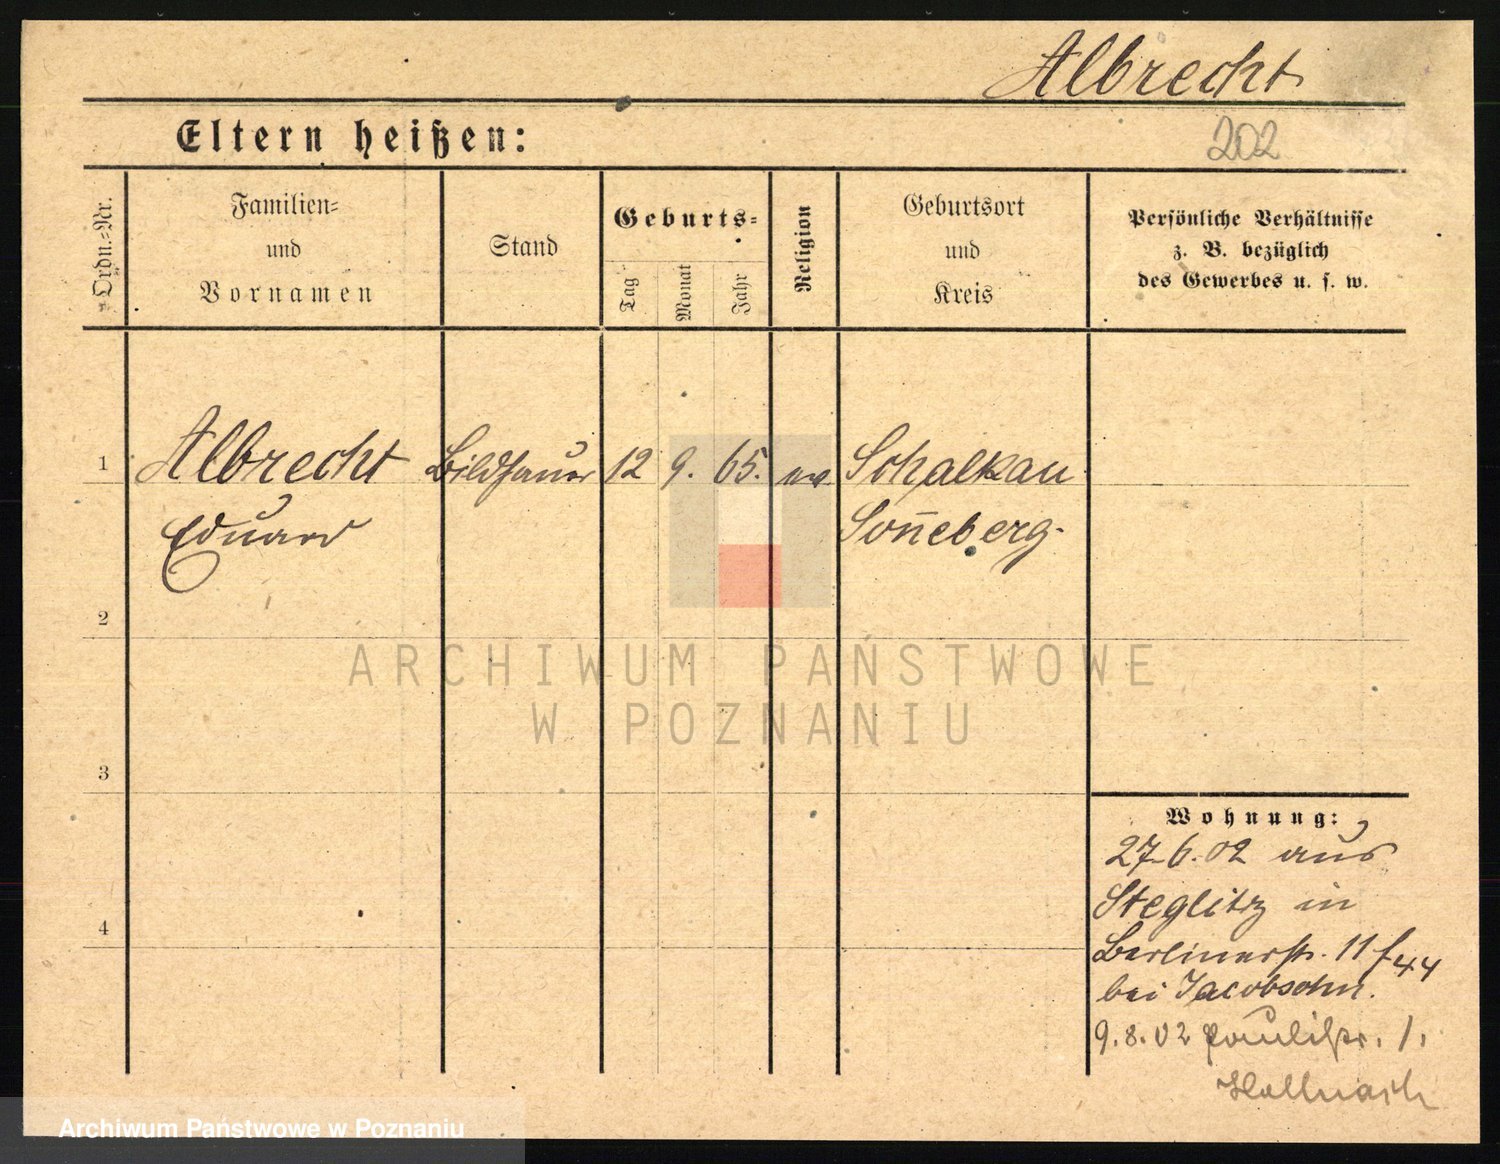 Albrecht
Eltern heißen:
202
Ordn.-Nr.
Familien-
und
Vornamen
Stand
Geburts-
Tag
Monat
Jahr
Religion
Geburtsort
und
Kreis
Persönliche Verhältnisse
z. B. bezüglich
des Gewerbes u. s. w.
1 Albrecht Bildhauer 12 9. 65. ev. Schalkau
Eduard Soñeberg.
2
ARCHIWUM PAŃSTWOWE
W POZNANIU
3
Wohnung:
27.6.02 aus
Steglitz in
4
Berlinerstr. 11 f 44
bei Jacobsohn.
9.8.02 Paulistr. 1.
Archiwum Państwowe w Poznaniu